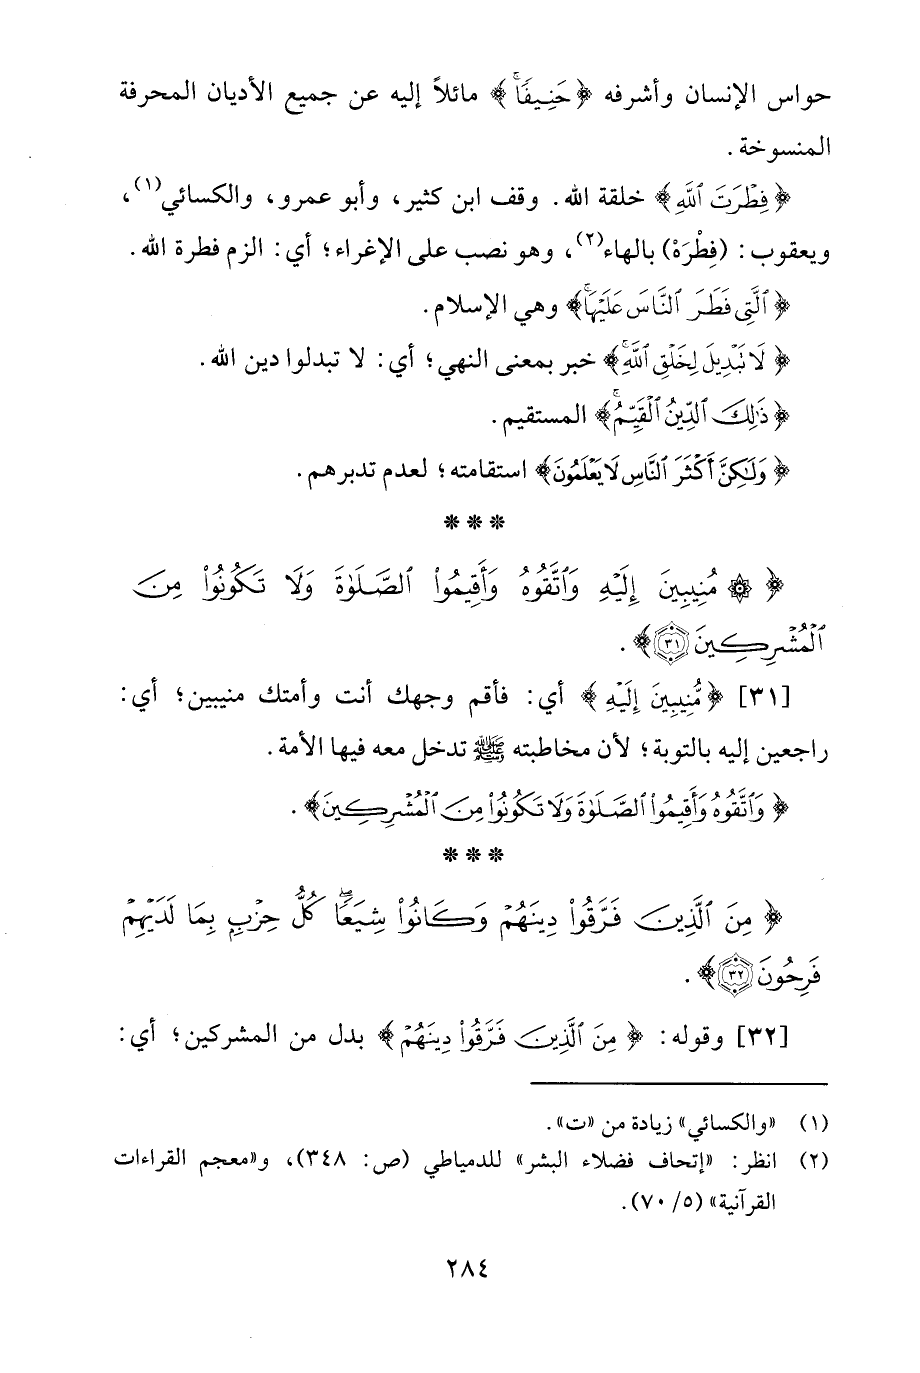 حواس الإنسان وأشرفه ﴿حَنِيفًاۚ﴾ مائلاً إليه عن جميع الأديان المحرفة
المنسوخة .
﴿فِطْرَتَ ٱللَّهِ﴾ خلقة الله. وقف ابن كثير، وأبو عمرو، والكسائي(١)،
ويعقوب: (فِطْرَهْ) بالهاء(٢)، وهو نصب على الإغراء؛ أي: الزم فطرة الله.
﴿ٱلَّتِى فَطَرَ ٱلنَّاسَ عَلَيْهَاۚ﴾ وهي الإسلام.
﴿لَا تَبْدِيلَ لِخَلْقِ ٱللَّهِۚ﴾ خبر بمعنى النهي؛ أي: لا تبدلوا دين الله.
﴿ذَٰلِكَ ٱلدِّينُ ٱلْقَيِّمُۚ﴾ المستقيم.
﴿وَلَٰكِنَّ أَكْثَرَ ٱلنَّاسِ لَا يَعْلَمُونَ﴾ استقامته؛ لعدم تدبرهم.
* * *
﴿۞ مُنِيبِينَ إِلَيْهِ وَٱتَّقُوهُ وَأَقِيمُوا۟ ٱلصَّلَوٰةَ وَلَا تَكُونُوا۟ مِنَ
ٱلْمُشْرِكِينَ ٣١﴾.
[٣١] ﴿مُّنِيبِينَ إِلَيْهِ﴾ أي: فأقم وجهك أنت وأمتك منيبين؛ أي:
راجعين إليه بالتوبة؛ لأن مخاطبته ﷺ تدخل معه فيها الأمة.
﴿وَٱتَّقُوهُ وَأَقِيمُوا۟ ٱلصَّلَوٰةَ وَلَا تَكُونُوا۟ مِنَ ٱلْمُشْرِكِينَ﴾.
* * *
﴿مِنَ ٱلَّذِينَ فَرَّقُوا۟ دِينَهُمْ وَكَانُوا۟ شِيَعًاۖ كُلُّ حِزْبٍۭ بِمَا لَدَيْهِمْ
فَرِحُونَ ٣٢﴾.
[٣٢] وقوله: ﴿مِنَ ٱلَّذِينَ فَرَّقُوا۟ دِينَهُمْ﴾ بدل من المشركين؛ أي:
(١) «والكسائي» زيادة من «ت».
(٢) انظر: «إتحاف فضلاء البشر» للدمياطي (ص: ٣٤٨)، و«معجم القراءات
القرآنية» (٥/ ٧٠).
٢٨٤